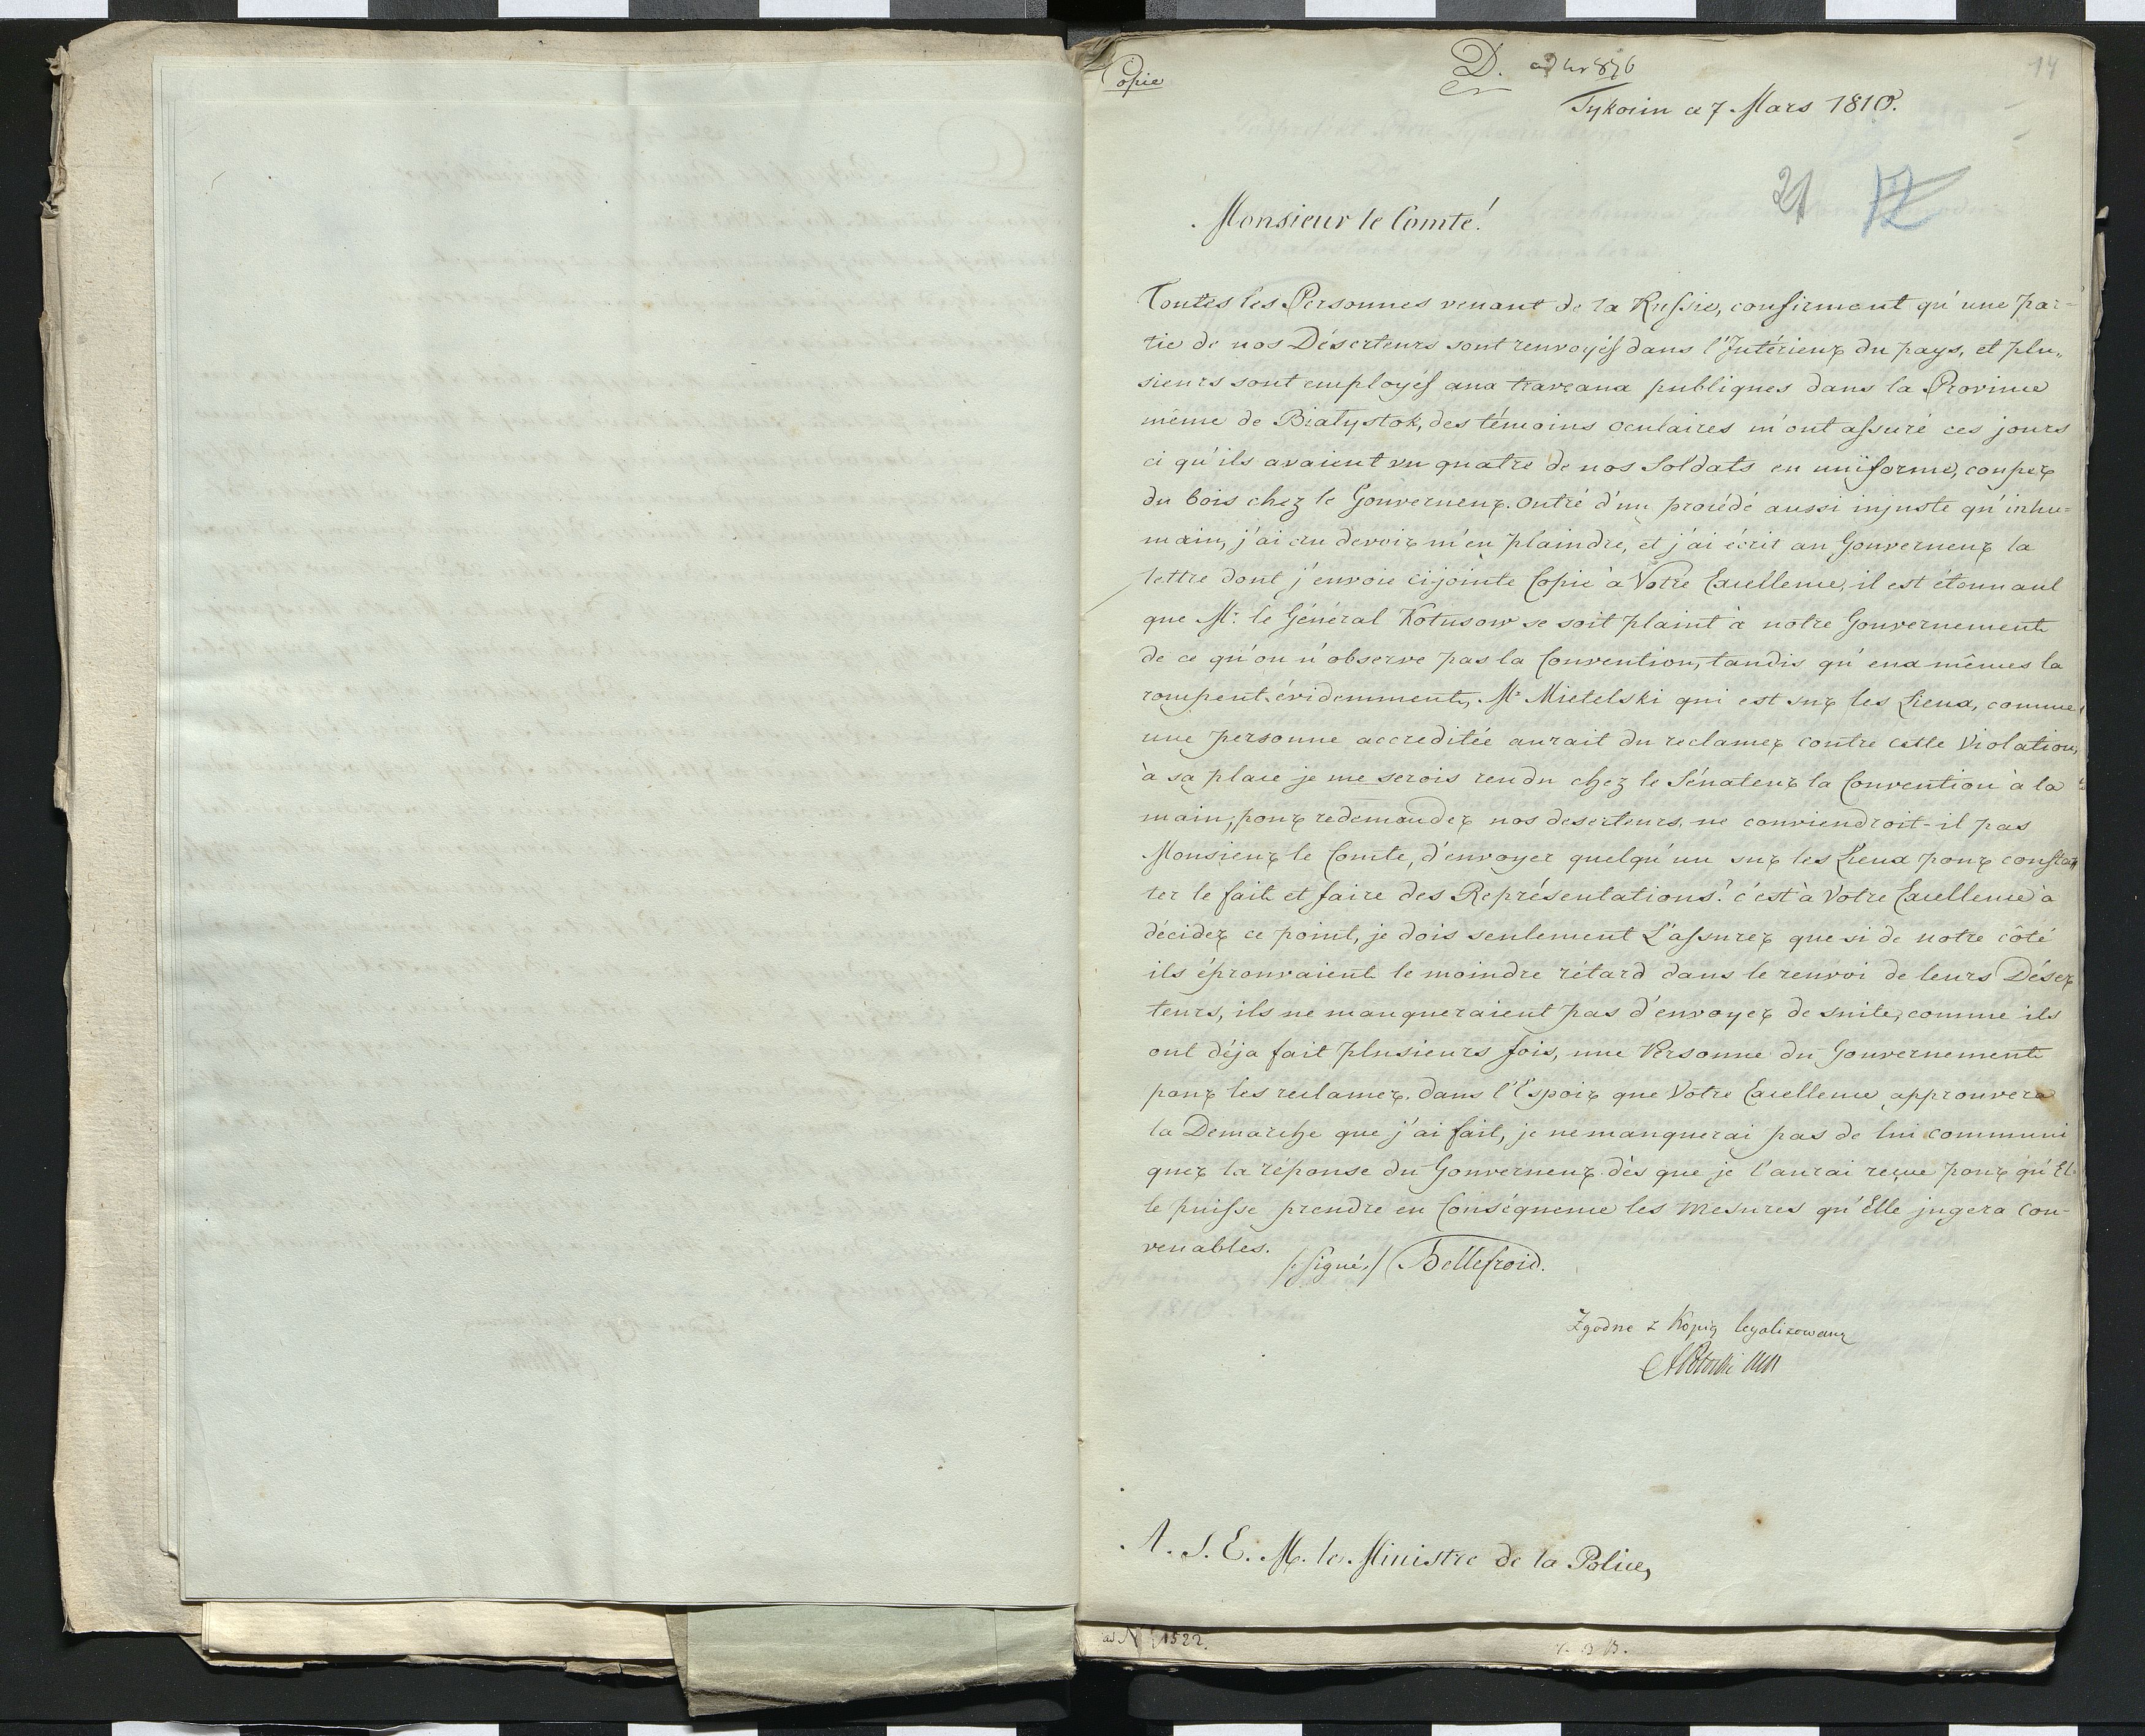 Copie
D. ad nr 876
14
Tykocin ce 7 Mars 1810.
21 12
Monsieur le Comte!
Toutes les Personnes venant de la Russie, confirment qu'une par=
tie de nos Déserteurs sont renvoyés dans l'Intérieur du pays, et plu„
sieurs sont employés aux travaux publiques dans la Province
même de Białystok, des témoins oculaires m'ont assuré ces jours
ci qu'ils avaient vu quatre de nos Soldats en uniforme, couper
du bois chez le Gouverneur. Outré d'un procédé aussi injuste qu'inhu=
main, j'ai cru devoir m'en plaindre, et j'ai écrit au Gouverneur la
lettre dont j'envoie cijointe Copie à Votre Excellence, il est étonnant
que Mr. le Général Kotusow se soit plaint à notre Gouvernement
de ce qu'on n'observe pas la Convention, tandis qu'eux mêmes la
rompent évidemment, Mr Mietelski qui est sur les Lieux, comme
une personne accreditée aurait du reclamer contre cette Violation,
à sa place je me serois rendu chez le Sénateur la Convention à la
main, pour redemander nos deserteurs, ne conviendroit-il pas
Monsieur le Comte, d'envoyer quelqu'un sur les Lieux pour consta„
ter le fait et faire des Représentations? c'est à Votre Excellence à
décider ce point, je dois seulement L'assurer que si de notre côté
ils éprouvaient le moindre rétard dans le renvoi de leurs Déser
teurs, ils ne manqueraient pas d'envoyer de suite, comme ils
ont déja fait plusieurs fois, une Personne du Gouvernement
pour les reclamer. dans l'Espoir que Votre Excellence approuvera
la Demarche que j'ai fait, je ne manquerai pas de lui communi
quer la réponse du Gouverneur dès que je l'aurai reçue pour qu'El-
le puisse prendre en Conséquence les Mesures qu'Elle jugera con-
venables.
/:signé:/ Bellefroid.
Zgodne z Kopią legalizowaną
A. S. E. M. le Ministre de la Police,
ad N 1522.